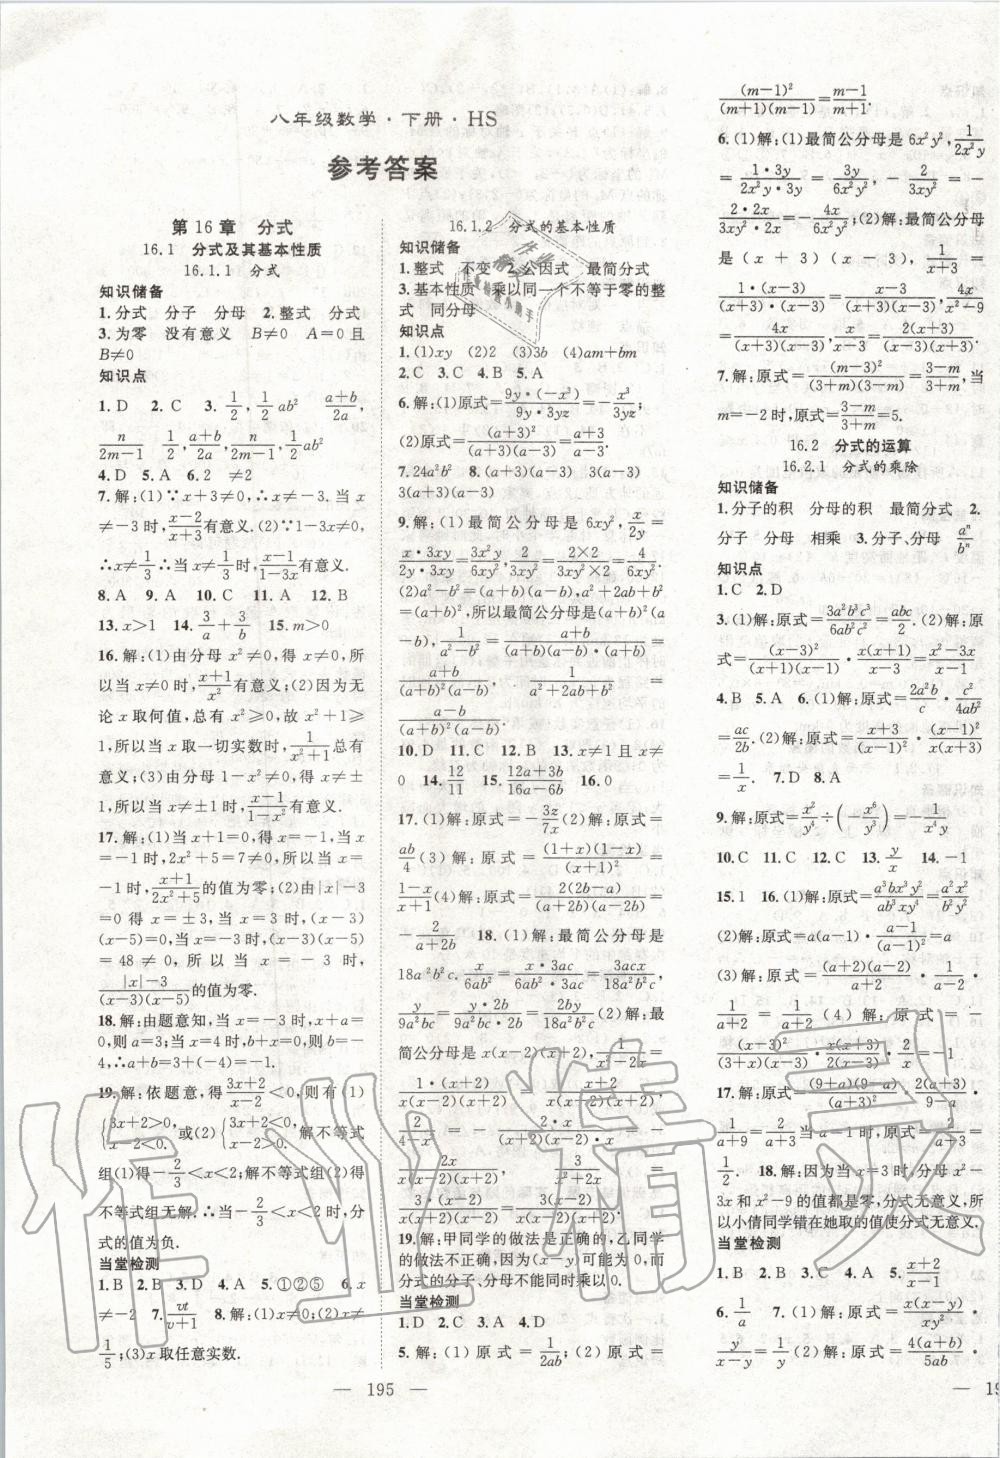 八年级数学·下册·HS
参考答案
第16章 分式
16.1 分式及其基本性质
16.1.1 分式
知识储备
1.分式 分子 分母 2.整式 分式
3.为零 没有意义 B≠0 A=0且
B≠0
知识点
1.D 2.C 3.1/2,1/2 ab² (a+b)/2a,
n/(2m-1) 1/2,(a+b)/2a,n/(2m-1),1/2 ab²
4.D 5.A 6.2 ≠2
7.解:(1)∵x+3≠0,∴x≠-3.当x
≠-3时,(x-2)/(x+3)有意义.(2)∵1-3x≠0,
∴x≠1/3,当x≠1/3时,x/(1-3x)有意义.
8.A 9.A 10.C 11.A 12.B
13.x>1 14.3/a+3/b 15.m>0
16.解:(1)由分母x²≠0,得x≠0,所
以当x≠0时,(x+1)/x²有意义;(2)因为无
论x取何值,总有x²≥0,故x²+1≥
1,所以当x取一切实数时,1/(x²+1)总有
意义;(3)由分母1-x²≠0,得x≠
±1,所以当x≠±1时,(x-1)/(1-x²)有意义.
17.解:(1)当x+1=0,得x=-1,所
以当x=-1时,2x²+5=7≠0,所以当
x=-1时,(x+1)/(2x²+5)的值为零;(2)由|x|-3
=0得x=±3,当x=3时,(x-3)
(x-5)=0,当x=-3时,(x-3)(x-5)
=48≠0,所以当x=-3时,
(|x|-3)/((x-3)(x-5))的值为零.
18.解:由题意知,当x=-3时,x+a=
0,则a=3;当x=4时,b+x=0,则b=
-4.∴a+b=3+(-4)=-1.
19.解:依题意,得(3x+2)/(x-2)<0,则有(1)
{3x+2>0, x-2<0.或(2){3x+2<0, x-2>0.解不等式
组(1)得-2/3<x<2;解不等式组(2)得
不等式组无解.∴-2/3<x<2时,分
式的值为负.
当堂检测
1.B 2.B 3.D 4.A 5.①②⑤ 6.x
≠-2 7.vt/(v+1) 8.解:(1)x≠0;(2)x≠
1/5;(3)x取任意实数.
16.1.2 分式的基本性质
知识储备
1.整式 不变 2.公因式 最简分式
3.基本性质 乘以同一个不等于零的整
式 同分母
知识点
1.(1)xy (2)2 (3)3b (4)am+bm
2.C 3.C 4.B 5.A
6.解:(1)原式=(9y·(-x³))/(9y·3yz)=-x³/3yz;
(2)原式=(a+3)²/((a+3)(a-3))=(a+3)/(a-3).
7.24a²b² 8.(a+3)(a-3) 3(a-3)
3(a+3)(a-3)
9.解:(1)最简公分母是6xy²,x/2y=
(x·3xy)/(2y·3xy)=3x²y/6xy²,2/3xy²=(2×2)/(3xy²×2)=4/6xy²
(2)a²-b²=(a+b)(a-b),a²+2ab+b²
=(a+b)²,所以最简公分母是(a+b)²(a
-b),1/(a²-b²)=(a+b)/((a+b)(a-b)(a+b))=
(a+b)/((a+b)²(a-b)), 1/(a²+2ab+b²)=
(a-b)/((a+b)²(a-b)).
10.D 11.C 12.B 13.x≠1且x≠
0 14.12/11 15.(12a+3b)/(16a-6b) 16.0
17.(1)解:原式=-3z/7x(2)解:原式=
ab/4(3)解:原式=((1+x)(1-x))/(x+1)²=
(1-x)/(x+1)(4)解:原式=2(2b-a)/((a+2b)(a-2b))=
-2/(a+2b) 18.(1)解:最简公分母是
18a²b²c.x/6ab²=(x·3ac)/(6ab²·3ac)=3acx/18a²b²c,
y/9a²bc=(y·2b)/(9a²bc·2b)=2by/18a²b²c(2)解:最
简公分母是x(x-2)(x+2),1/(x²-2x)=
(1·(x+2))/(x(x-2)(x+2))=(x+2)/(x(x-2)(x+2)),
2/(4-x²)=-(2·x)/(x(x-2)(x+2))=-
2x/(x(x-2)(x+2)),3/(x²+2x)=
(3·(x-2))/(x(x+2)(x-2))=3(x-2)/(x(x+2)(x-2)).
19.解:甲同学的做法是正确的,乙同学
的做法不正确,因为(x-y)可能为0,而
分式的分子、分母不能同时乘以0.
当堂检测
1.D 2.C 3.A 4.D
5.解:(1)原式=1/2ab;(2)原式=
(m-1)²/((m+1)(m-1))=(m-1)/(m+1).
6.(1)解:(1)最简公分母是6x²y²,1/2x²y
=(1·3y)/(2x²y·3y)=3y/6x²y²,-2/3xy²=
-(2·2x)/(3xy²·2x)=-4x/6x²y²;(2)解:最简公分母
是(x+3)(x-3),1/(x+3)=
(1·(x-3))/((x+3)·(x-3))=(x-3)/((x+3)(x-3)),4x/(x²-9)
=4x/((x+3)(x-3)),2/(x-3)=2(x+3)/((x+3)(x-3)).
7.解:原式=(m-3)²/((3+m)(3-m))=(3-m)/(3+m),当
m=-2时,原式=(3-m)/(3+m)=5.
16.2 分式的运算
16.2.1 分式的乘除
知识储备
1.分子的积 分母的积 最简分式 2.
分子 分母 相乘 3.分子、分母 aⁿ/bⁿ
知识点
1.C 2.D
3.(1)解:原式=3a²b³c³/6ab²c²=abc/2.(2)解:原
式=(x-3)²/((x+1)(x-1))·x(x+1)/(x-3)=(x²-3x)/(x-1)
4.B 5.A 6.(1)解:原式=2a²b/c·c²/4ab²=
ac/2b.(2)解:原式=(x+3)/(x-1)²·(x-1)²/(x(x+3))
=1/x. 7.D 8.A
9.解:原式=x²/y⁴÷(-x⁶/y³)=-1/x⁴y
10.C 11.C 12.C 13.y/x 14.-1
15.1 16.(1)解:原式=a³bx³y²/ab³xy⁴=a²x²/b²y²
(2)解:原式=a(a-1)·(a-1)/(a-1)²=a
(3)解:原式=((a+2)(a-2))/(a+2)²·1/(a-2)=
1/(a+2)=1/(a+2)(4)解:原式=-
(x-3)²/((3+x)(x-3))·x(x+3)/2(x-3)·2/x=-1
17.解:原式=((9+a)(9-a))/(a+3)²·2(a+3)/(9-a)·
1/(a+9)=2/(a+3)当a=1时,原式=2/(a+3)=
1/2. 18.解:因为当x=3时,分母x²-
3x和x²-9的值都是零,分式无意义,所
以小倩同学错在她取的值使分式无意义.
当堂检测
1.B 2.B 3.C 4.A 5.(x+2)/(x-1)
6.1/a 7.(1)解:原式=x(x-y)/xy²·
y/(x-y)=1/y(2)解:原式=4(a+b)/5ab·
— 195 —
作业精灵